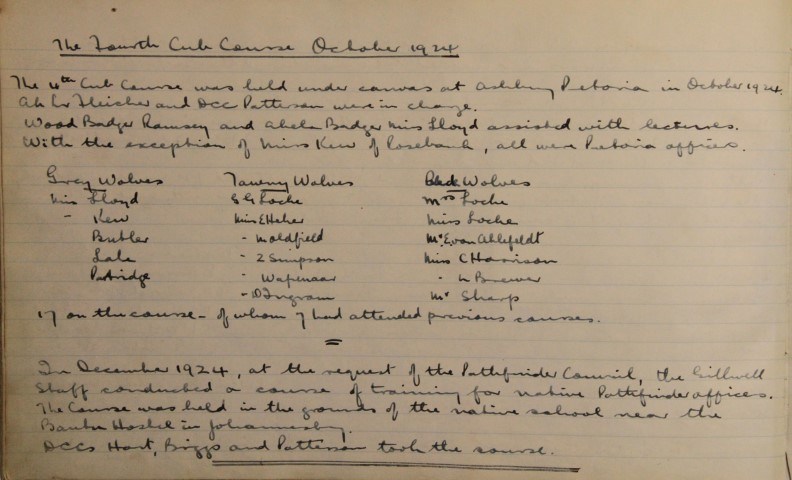 The Fourth Cub Course October 1924
The 4th Cub Course was held under canvas at Ashbury Pretoria in October 1924.
Ak Ldr Fleischer and DCC Patterson were in charge.
Wood Badger Ramsey and Akela Badger Miss Lloyd assisted with lectures.
With the exception of Miss Kew of Rosebank, all were Pretoria officers.
Grey Wolves Tawny Wolves Black Wolves
Miss Lloyd S G Locke Mrs Locke
- Kew Miss E Heher Miss Locke
Butler - M Oldfield Mr E van Ahlefeldt
Lale - Z Simpson Miss C Harrison
Partridge - Wapenaar - L Brewer
- D Ingram Mr Sharp
17 on the course - of whom 7 had attended previous courses.
=
In December 1924, at the request of the Pathfinder Council, the Gillwell
Staff conducted a course of training for native Pathfinder officers.
The Course was held in the grounds of the native school near the
Bantu Hostel in Johannesbg.
DCCs Hart, Briggs and Patterson took the course.